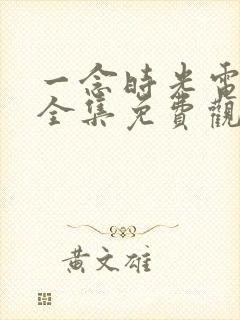 一念時光電
全集免費觀
黃文雄